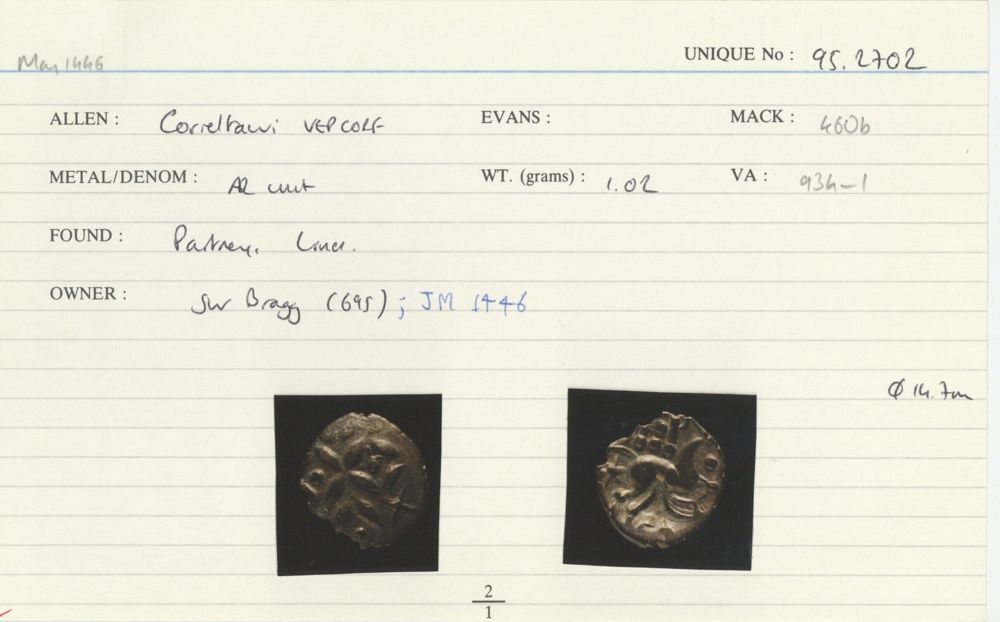 May 1446
UNIQUE No : 95.2702
ALLEN : Corieltauvi VEP CORF EVANS : MACK : 460b
METAL/DENOM : AR unit WT. (grams) : 1.02 VA : 934-1
FOUND : Partney, Lincs.
OWNER : SW Bragg (695) ; JM 1446
Ø 14.7m
2
1